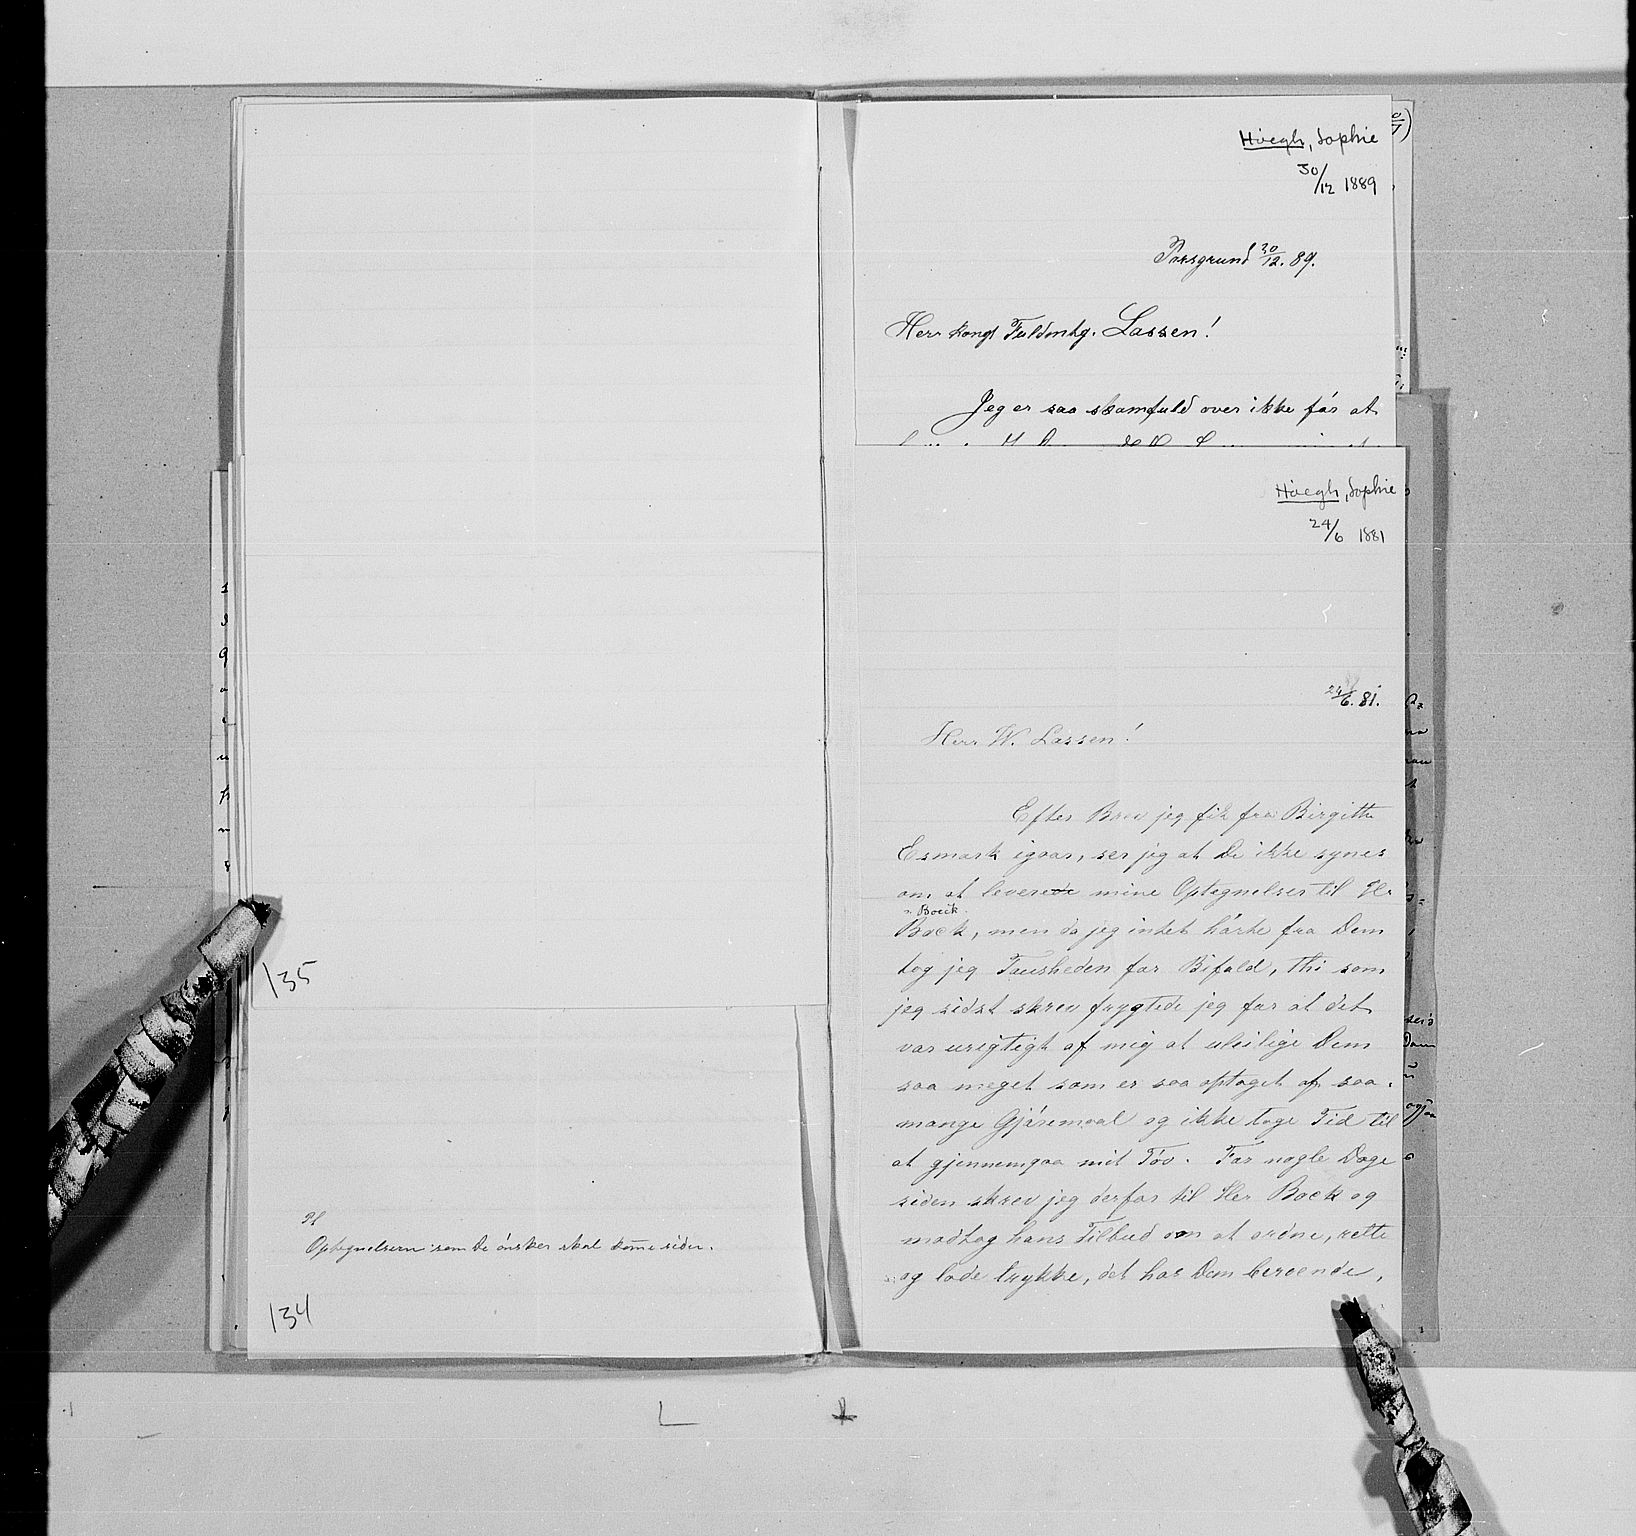 135
H
Optegnelserne som De ønsker skal kōme siden.
134
Høegh, Sophie
30/12 1889
Porsgrund 30/12. 89.
Herr kongl Fuldmtg. Lassen!
Jeg er saa skamfuld over ikke før at
Høegh, Sophie
24/6 1881
24/6. 81.
Herr W. Lassen!
Efter Brev jeg fik fra Birgitte
Esmark igaar, ser jeg at De ikke synes
om at leverede mine Optegnelser til Hr
Boeck
Bock, men da jeg intet hørte fra Dem
tog jeg Tausheden for Bifald, thi som
jeg sidst skrev frygtede jeg for at det
var urigtigt af mig at uleilige Dem
saa meget som er saa optaget af saa
mange Gjøremaal og ikke tage Tid til
at gjennemgaa mit Tøv. For nogle Dage
siden skrev jeg derfor til Her Bock og
modtog hans Tilbud om at ordne, rette
og lade trykke, det har Dem beroende,